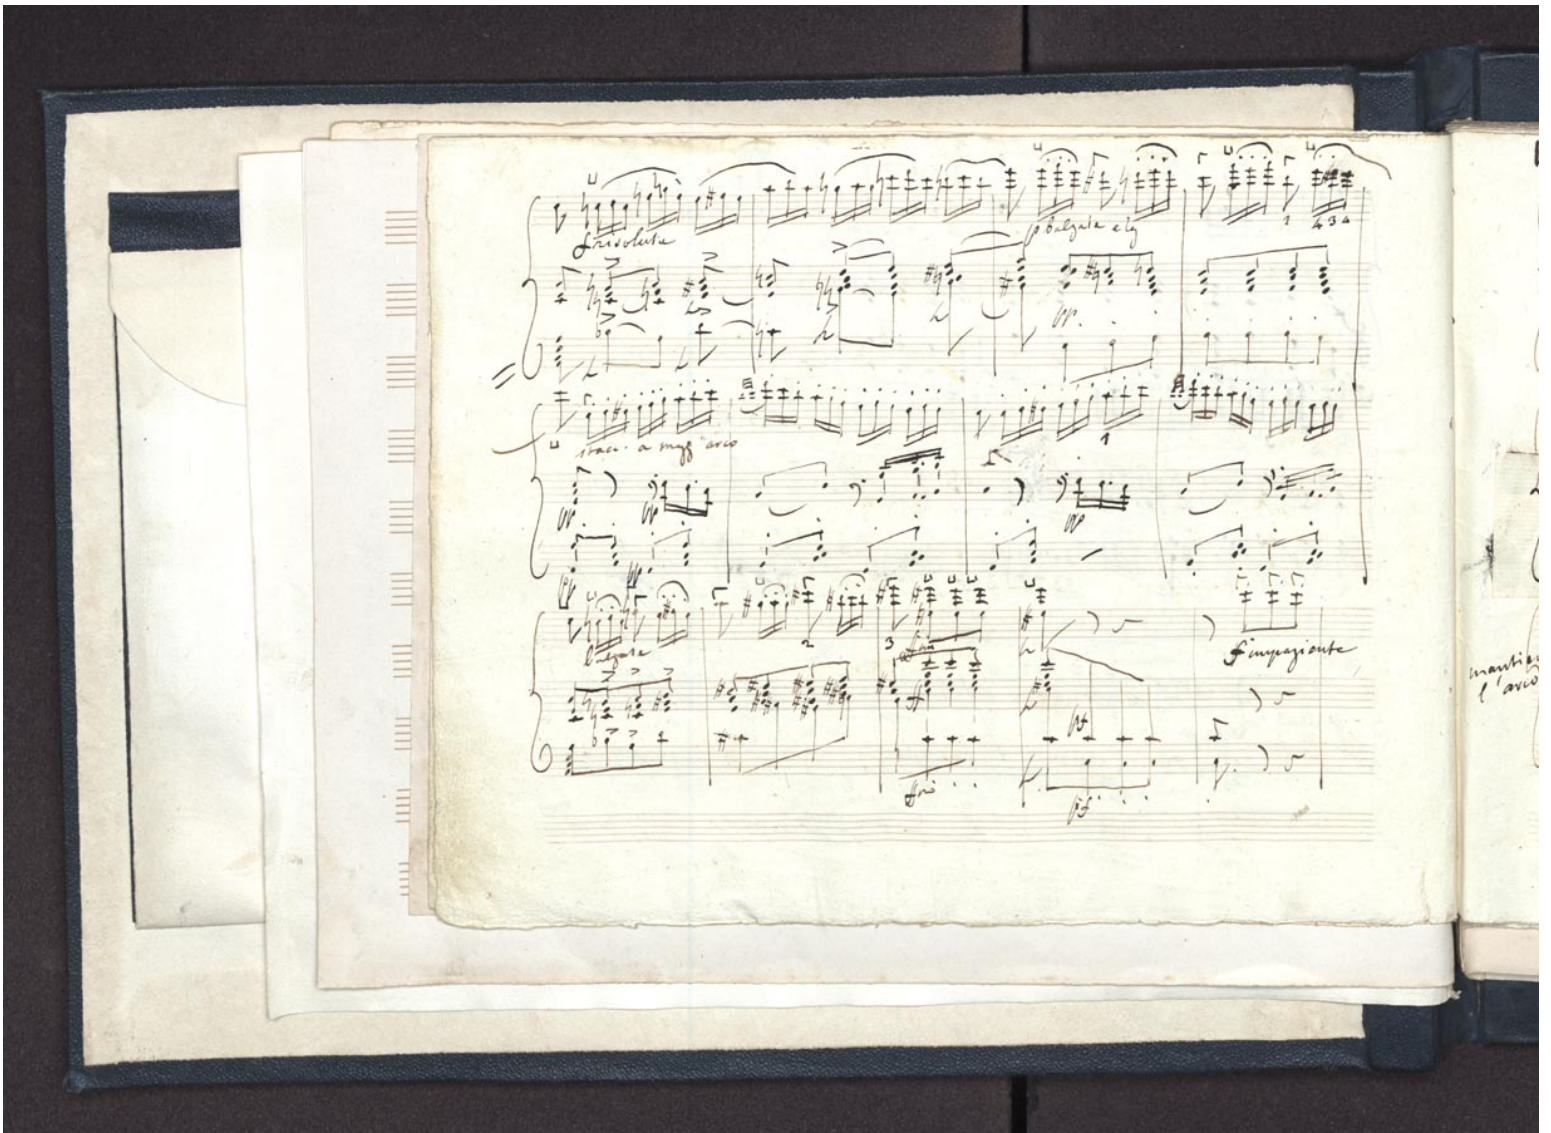 f risoluta
p balzata e leg
1 4 3 4
stacc. a mezz' arco
1
pp pp pp
pp pp
balzata
2 3
ff
f impaziente
pf
pf
mantien
l'arco